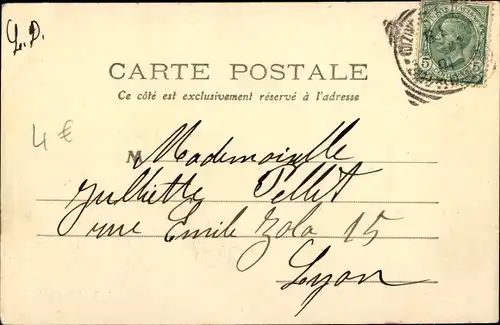 L.D.
CARTE POSTALE
Ce côté est exclusivement réservé à l'adresse
4 €
M Mademoiselle
Julliette Pellet
rue Emile Zola 15
Lyon
5 5